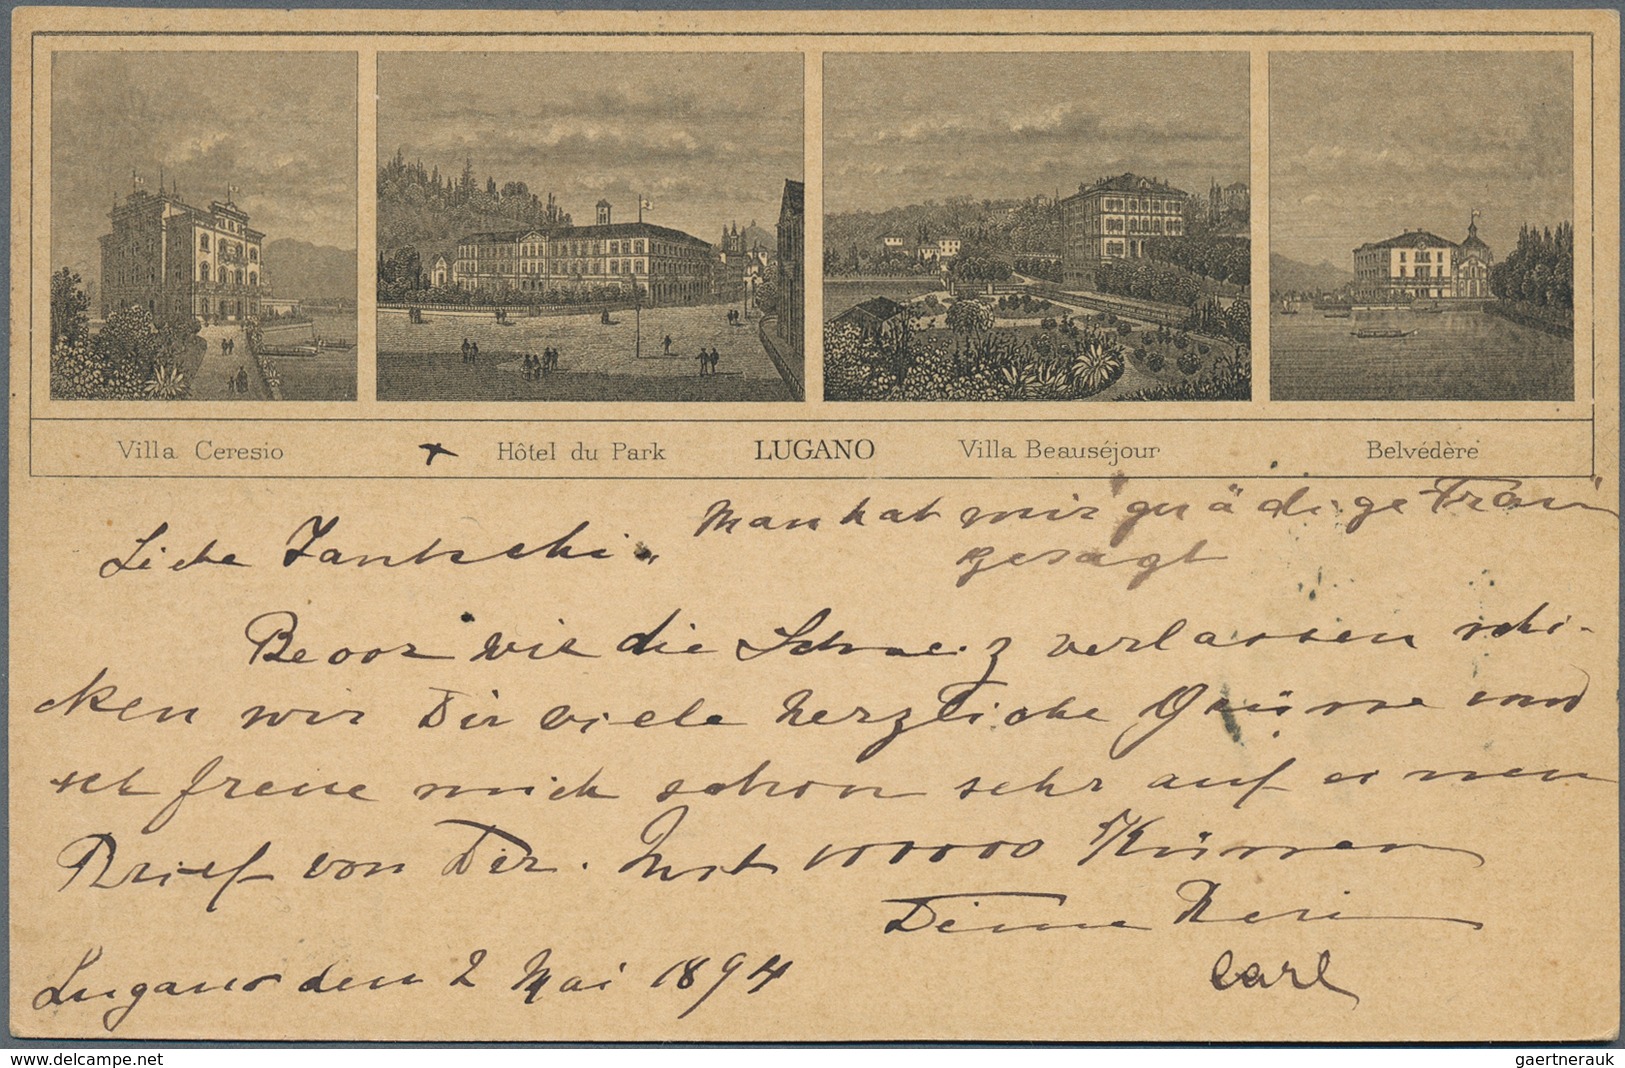 Villa Ceresio + Hôtel du Park LUGANO Villa Beauséjour Belvédère
Man hat mir gnädige Frau
gesagt
Liebe
Bevor wir die Schweiz verlassen schi-
cken wir Dir viele herzliche Grüsse und
ich freue mich schon sehr auf einen
Brief von Dir. Mit 1000000 Küssen
Deine Resi
Carl
Lugano den 2 Mai 1894
www.delcampe.net
gaertnerauk